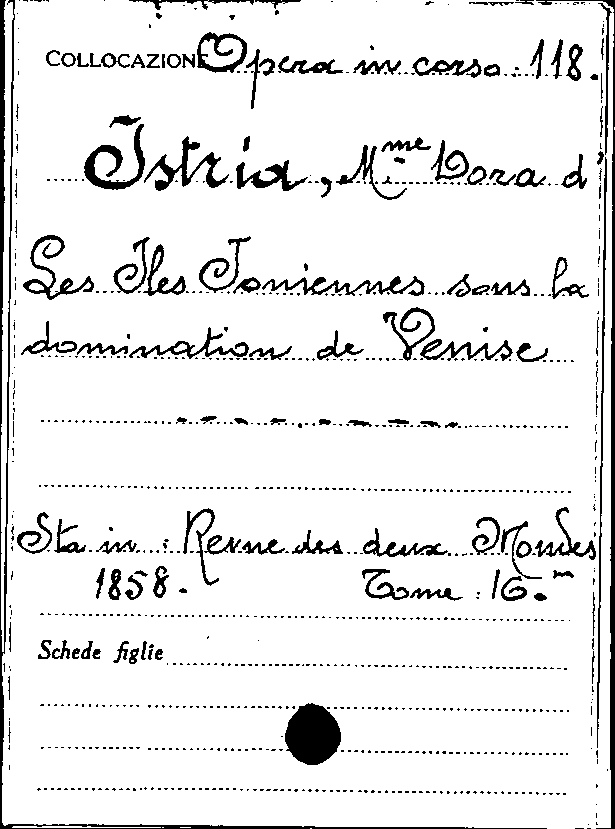 COLLOCAZIONE Opera in corso : 118.
Istria, M.me Dora d'
Les Iles Ioniennes sous la
domination de Venise
Sta in : Revue des deux Mondes
1858. Tome : 16.m
Schede figlie